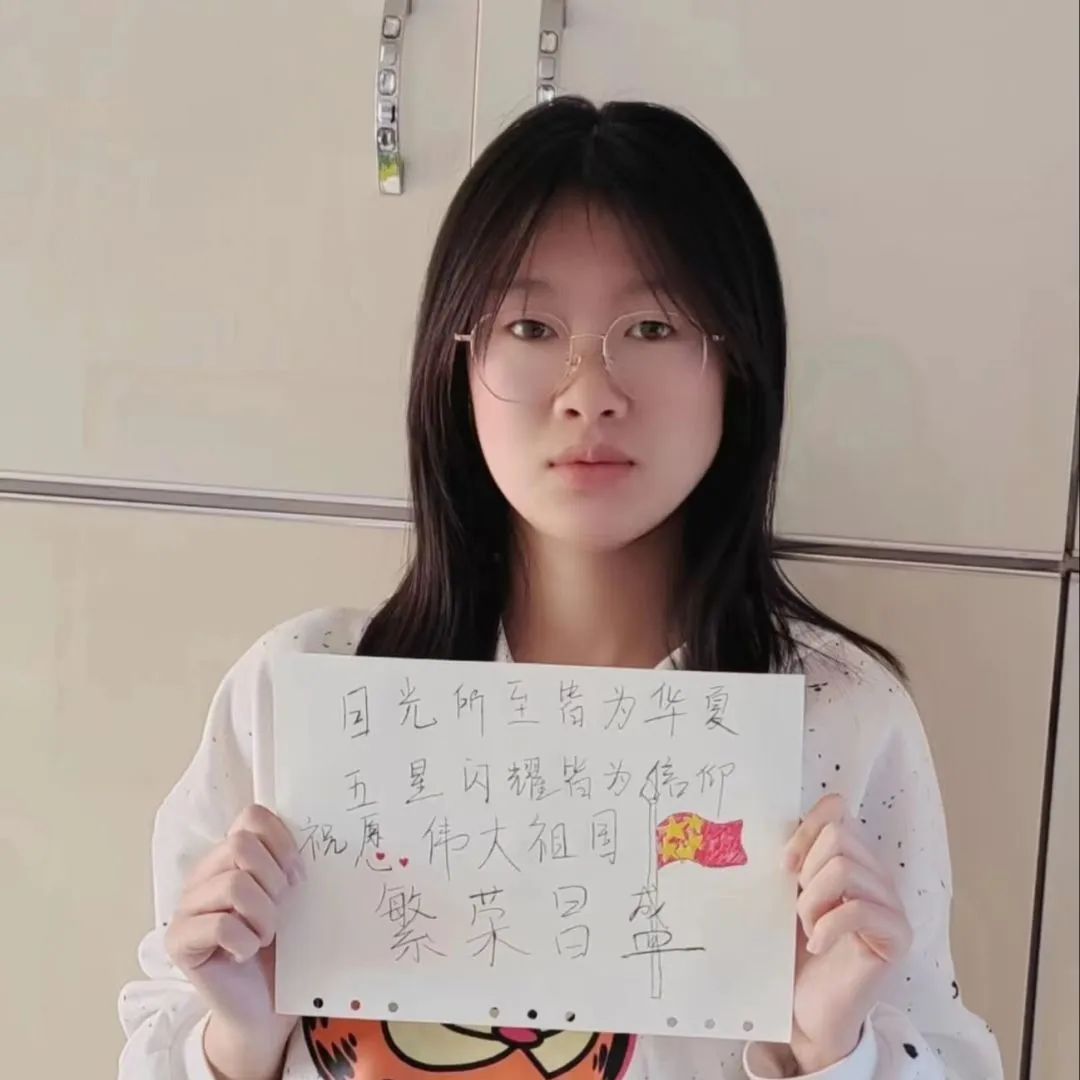 目光所至皆为华夏
五星闪耀皆为信仰
祝愿伟大祖国
繁荣昌盛